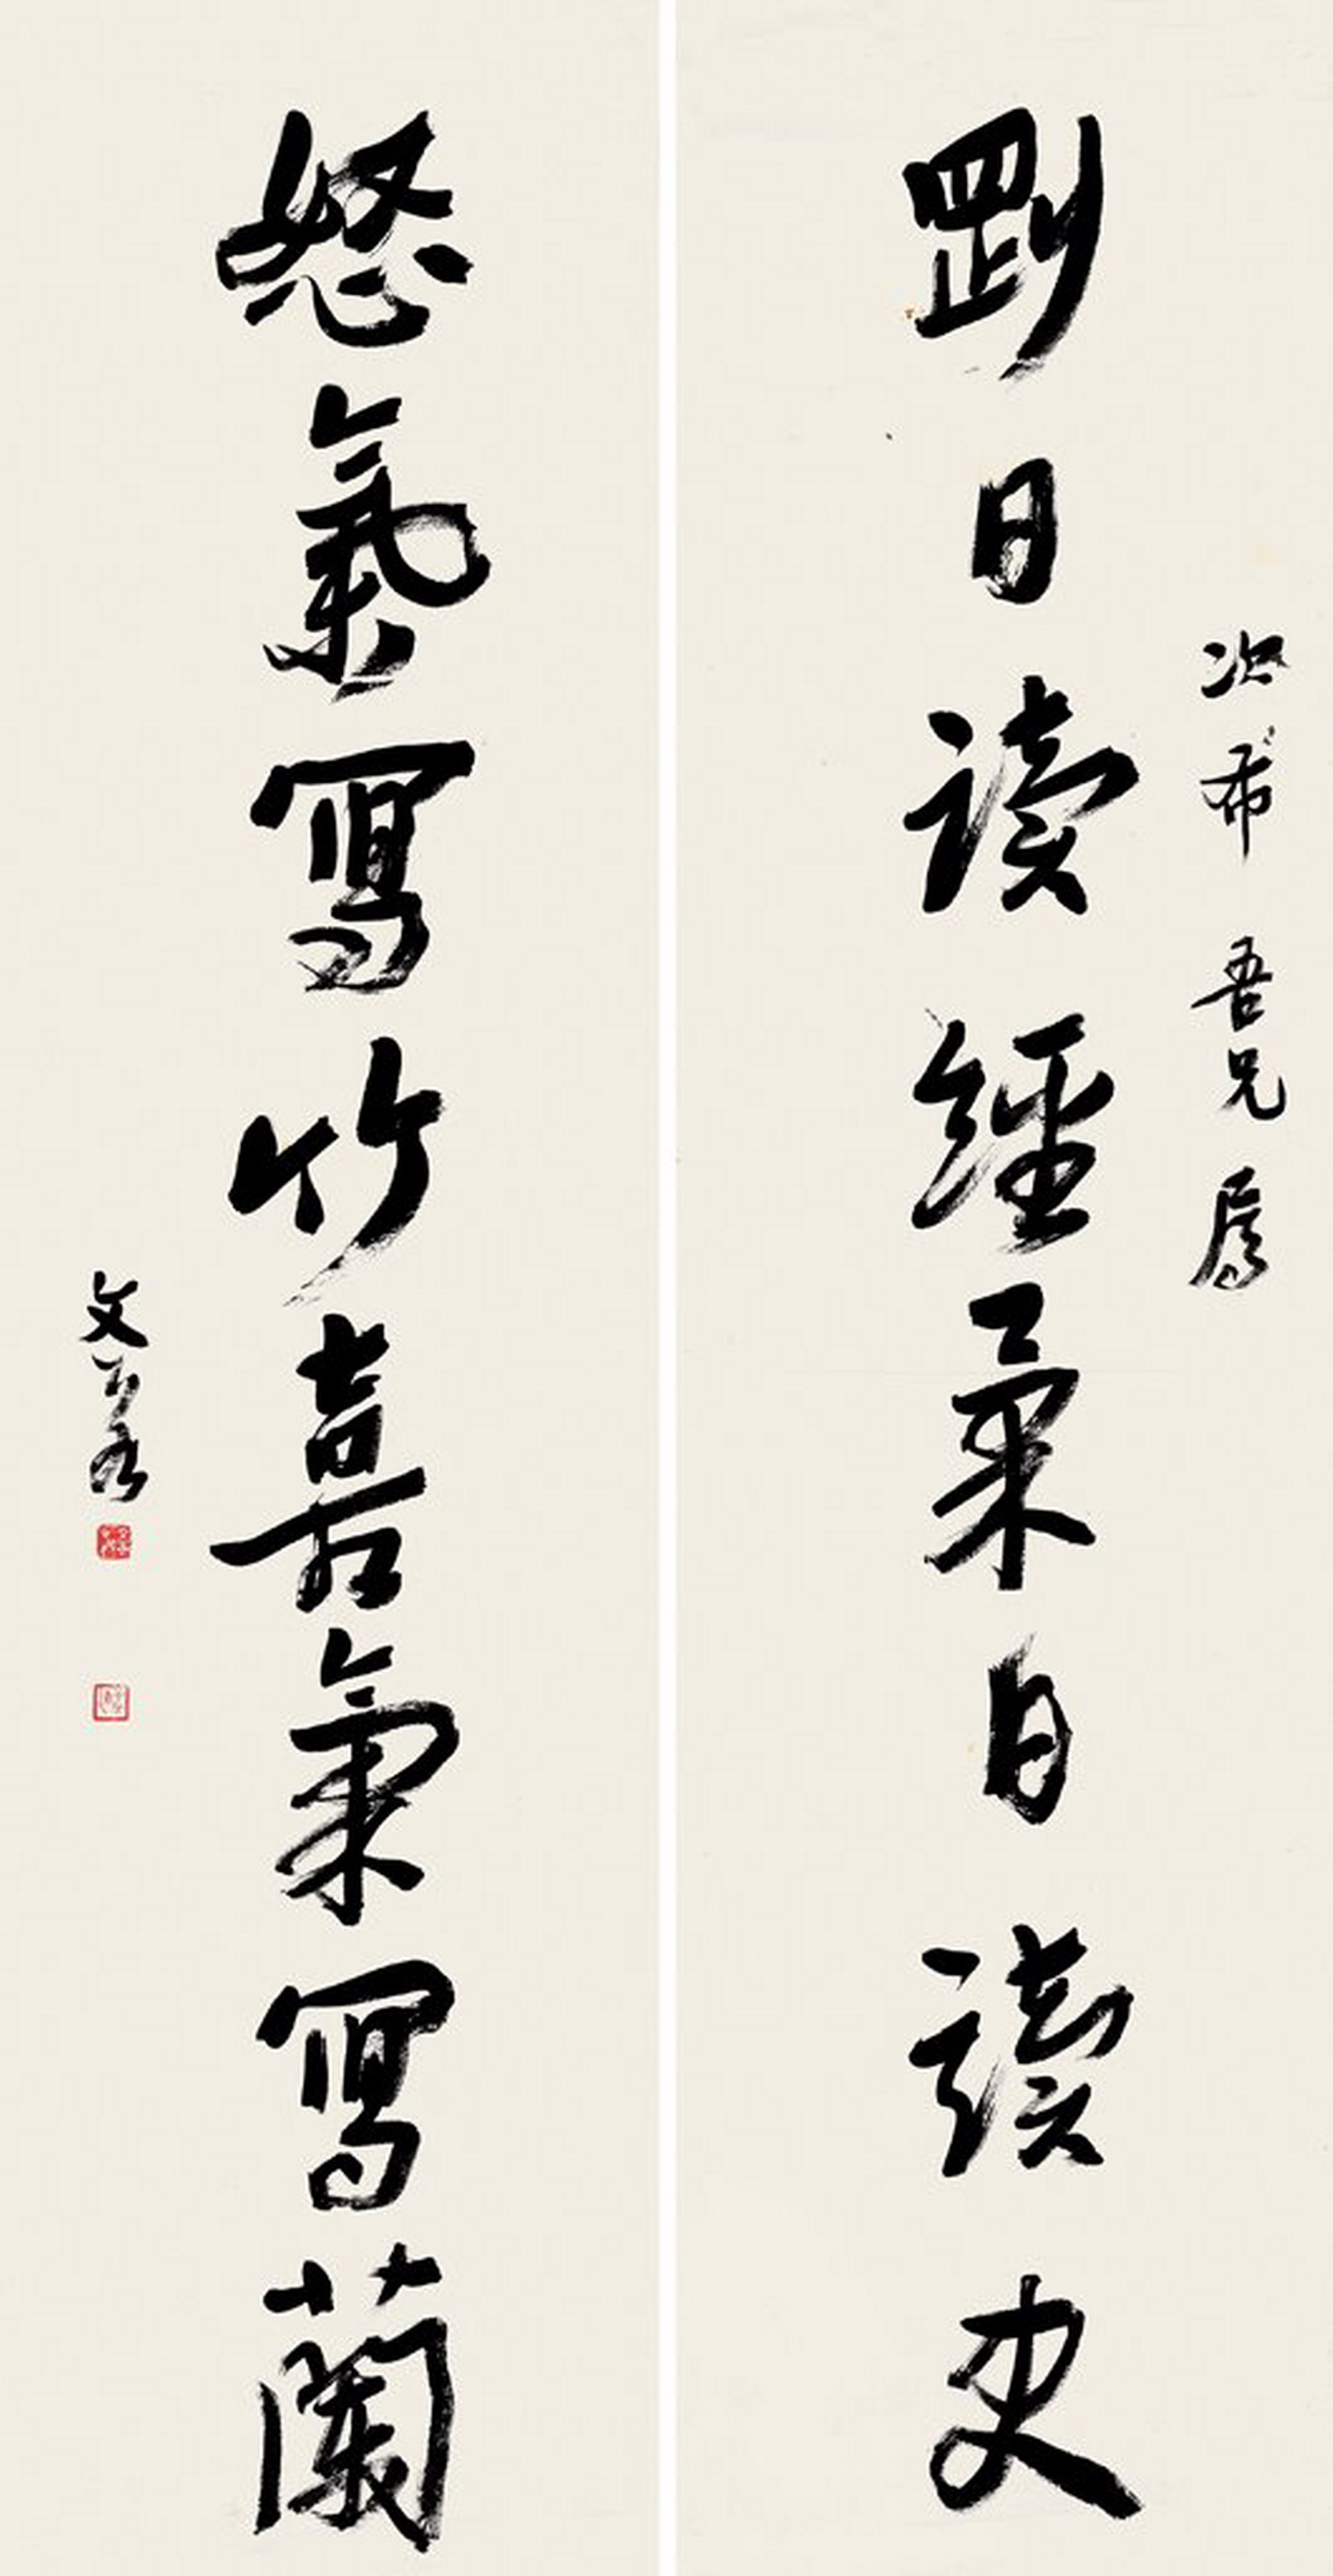 希 吾兄 屬
剛日讀經柔日讀史
怒氣寫竹喜氣寫蘭
文